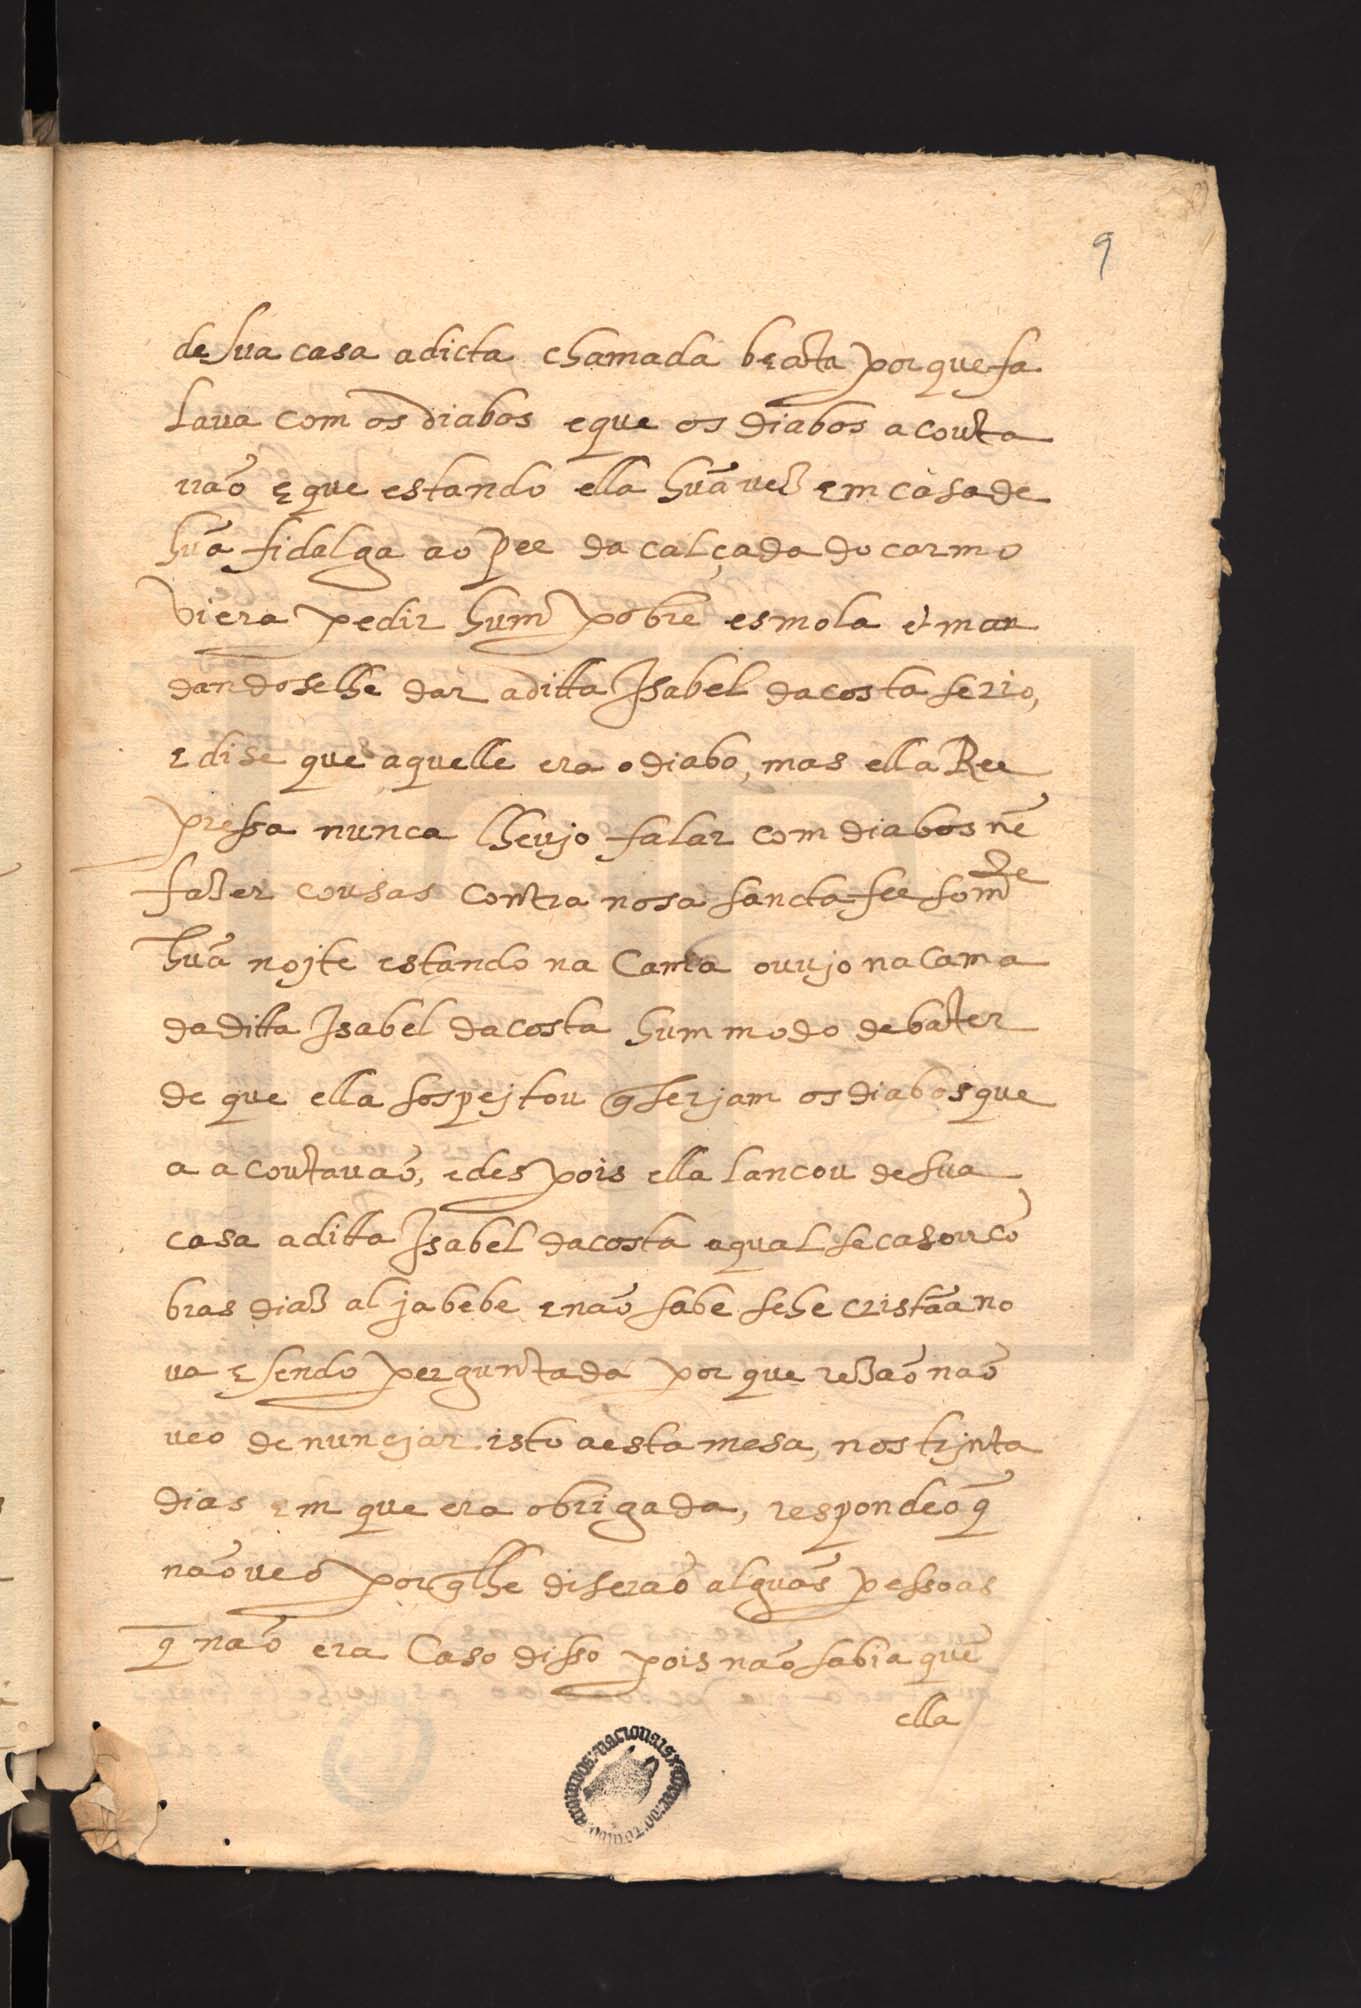 9
de sua casa a dicta chamada beata porque fa
laua com os diabos e que os diabos acouta
uaõ e que estando ella huã uez em casa de
huã fidalga ao pee da calçada do carmo
viera pedir hum pobre esmola e man
dandoselhe dar a ditta Isabel da costa se rio,
e dise que aquelle era o diabo, mas ella Ree
pressa nunca lhe ujo falar com diabos nẽ
fazer cousas contra nosa sancta fee somte
huã nojte estando na Cama ouujo na Cama
da ditta Isabel da costa hum modo de bater
de que ella sospejtou q̃ serjam os diabos que
a acoutauaõ, e despois ella lancou de sua
casa a ditta Isabel da costa a qual se casou cõ
bras diaz aljabebe e naõ sabe se he cristãa no
ua e sendo perguntada por que rezaõ naõ
ueo denuncjar isto a esta mesa, nos trjnta
dias em que era obrigada, respondeo q̃
naõ ueo porq̃ lhe diseraõ alguãs pessoas
q̃ naõ era Caso disso pois naõ sabia quẽ
ella